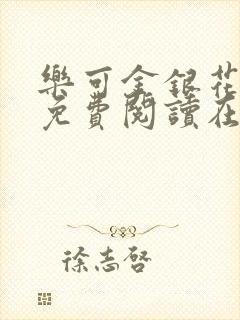 樂可金銀花
免費閱讀在
徐志啓